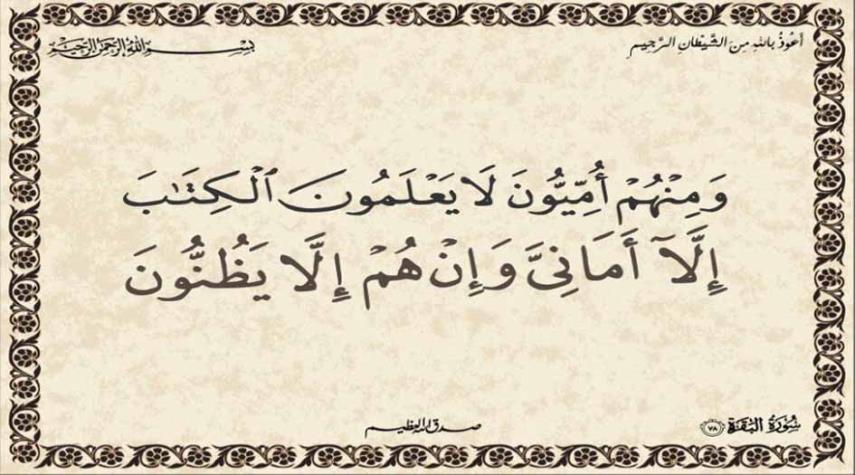 أعوذ بالله من الشيطان الرجيم
بسم الله الرحمن الرحيم
وَمِنْهُمْ أُمِّيُّونَ لَا يَعْلَمُونَ ٱلْكِتَٰبَ
إِلَّآ أَمَانِىَّ وَإِنْ هُمْ إِلَّا يَظُنُّونَ
سورة البقرة ٧٨
صدق الله العظيم